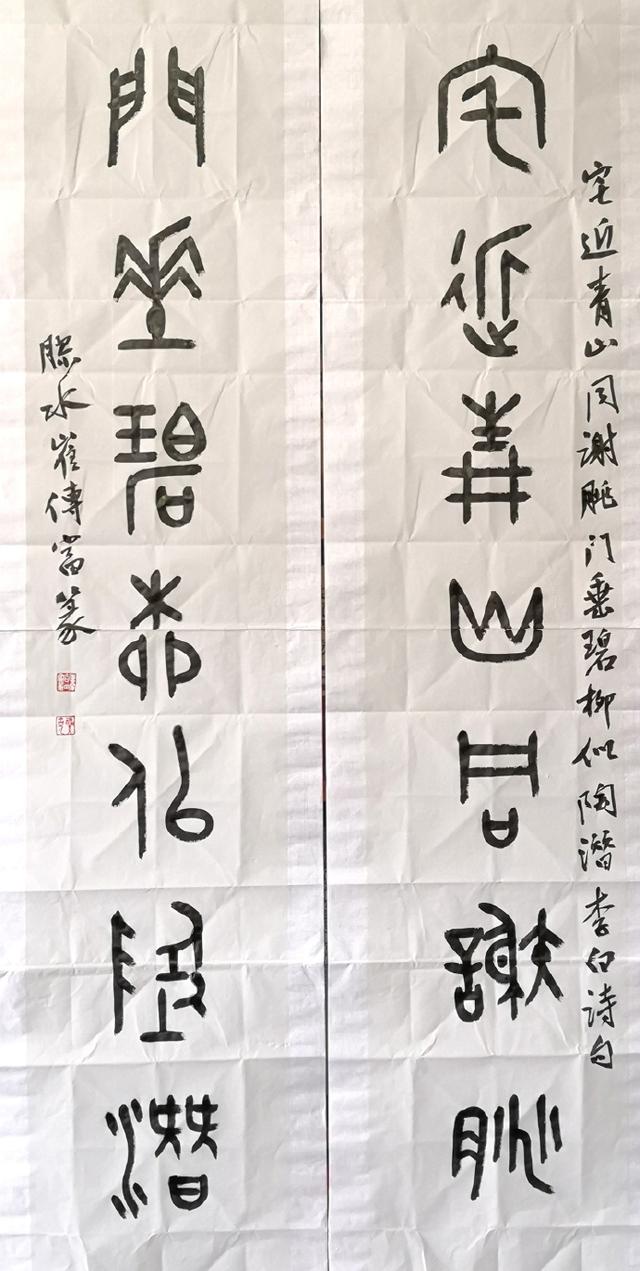 宅近青山同謝朓
宅近青山同谢朓门垂碧柳似陶潜 李白诗句
門垂碧柳似陶潛
滕水崔傳富篆